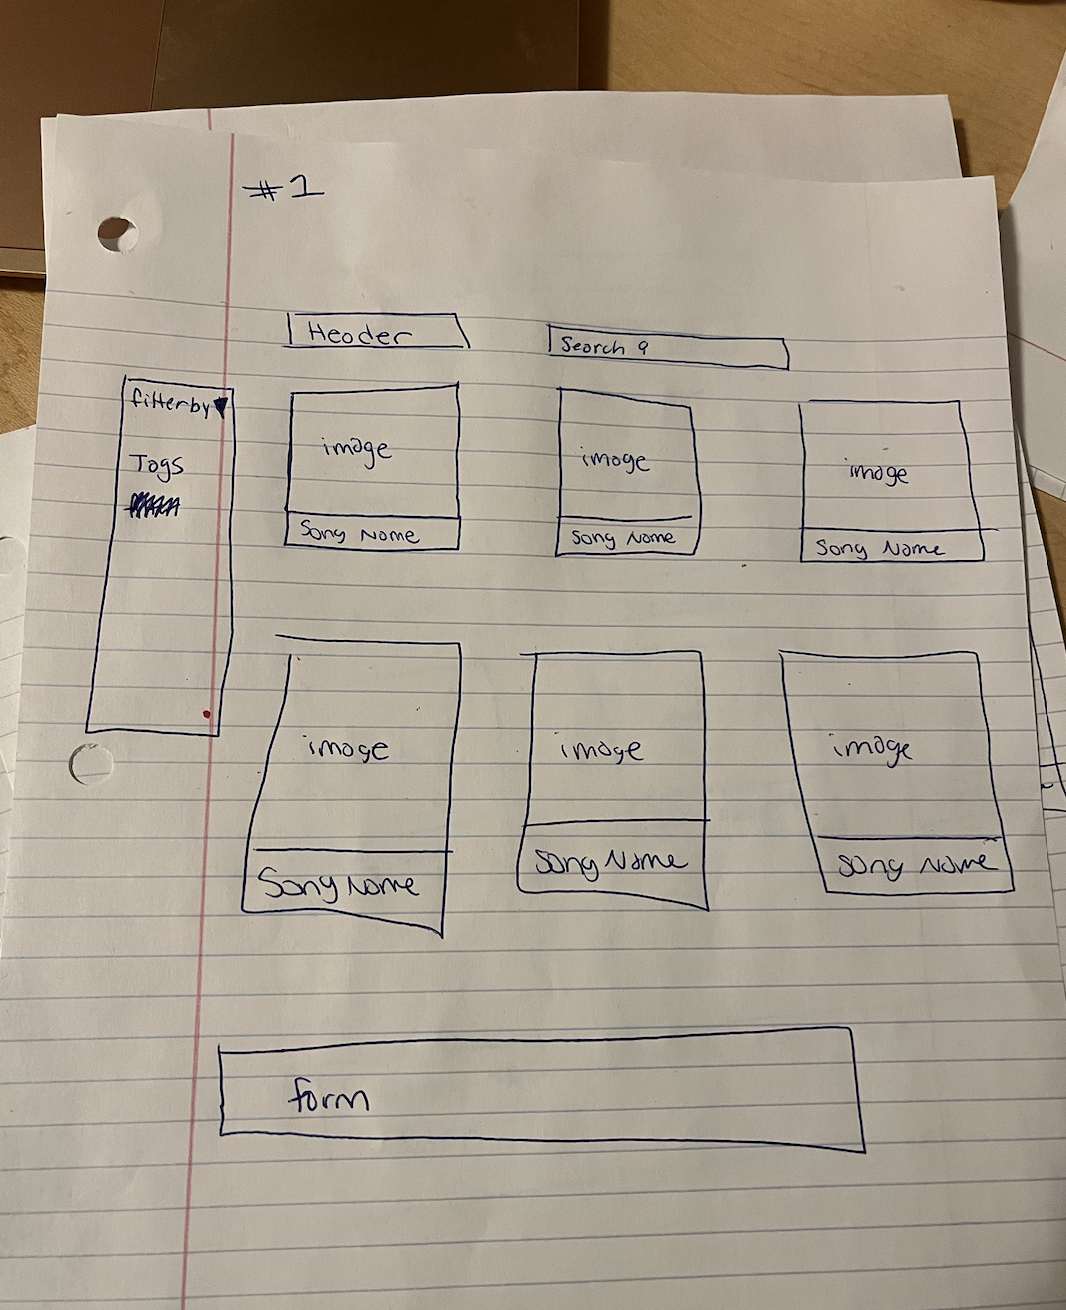 #1
Header
Search
filterby
Tags
image
Song Name
image
Song Name
image
Song Name
image
Song Name
image
Song Name
image
Song Name
form